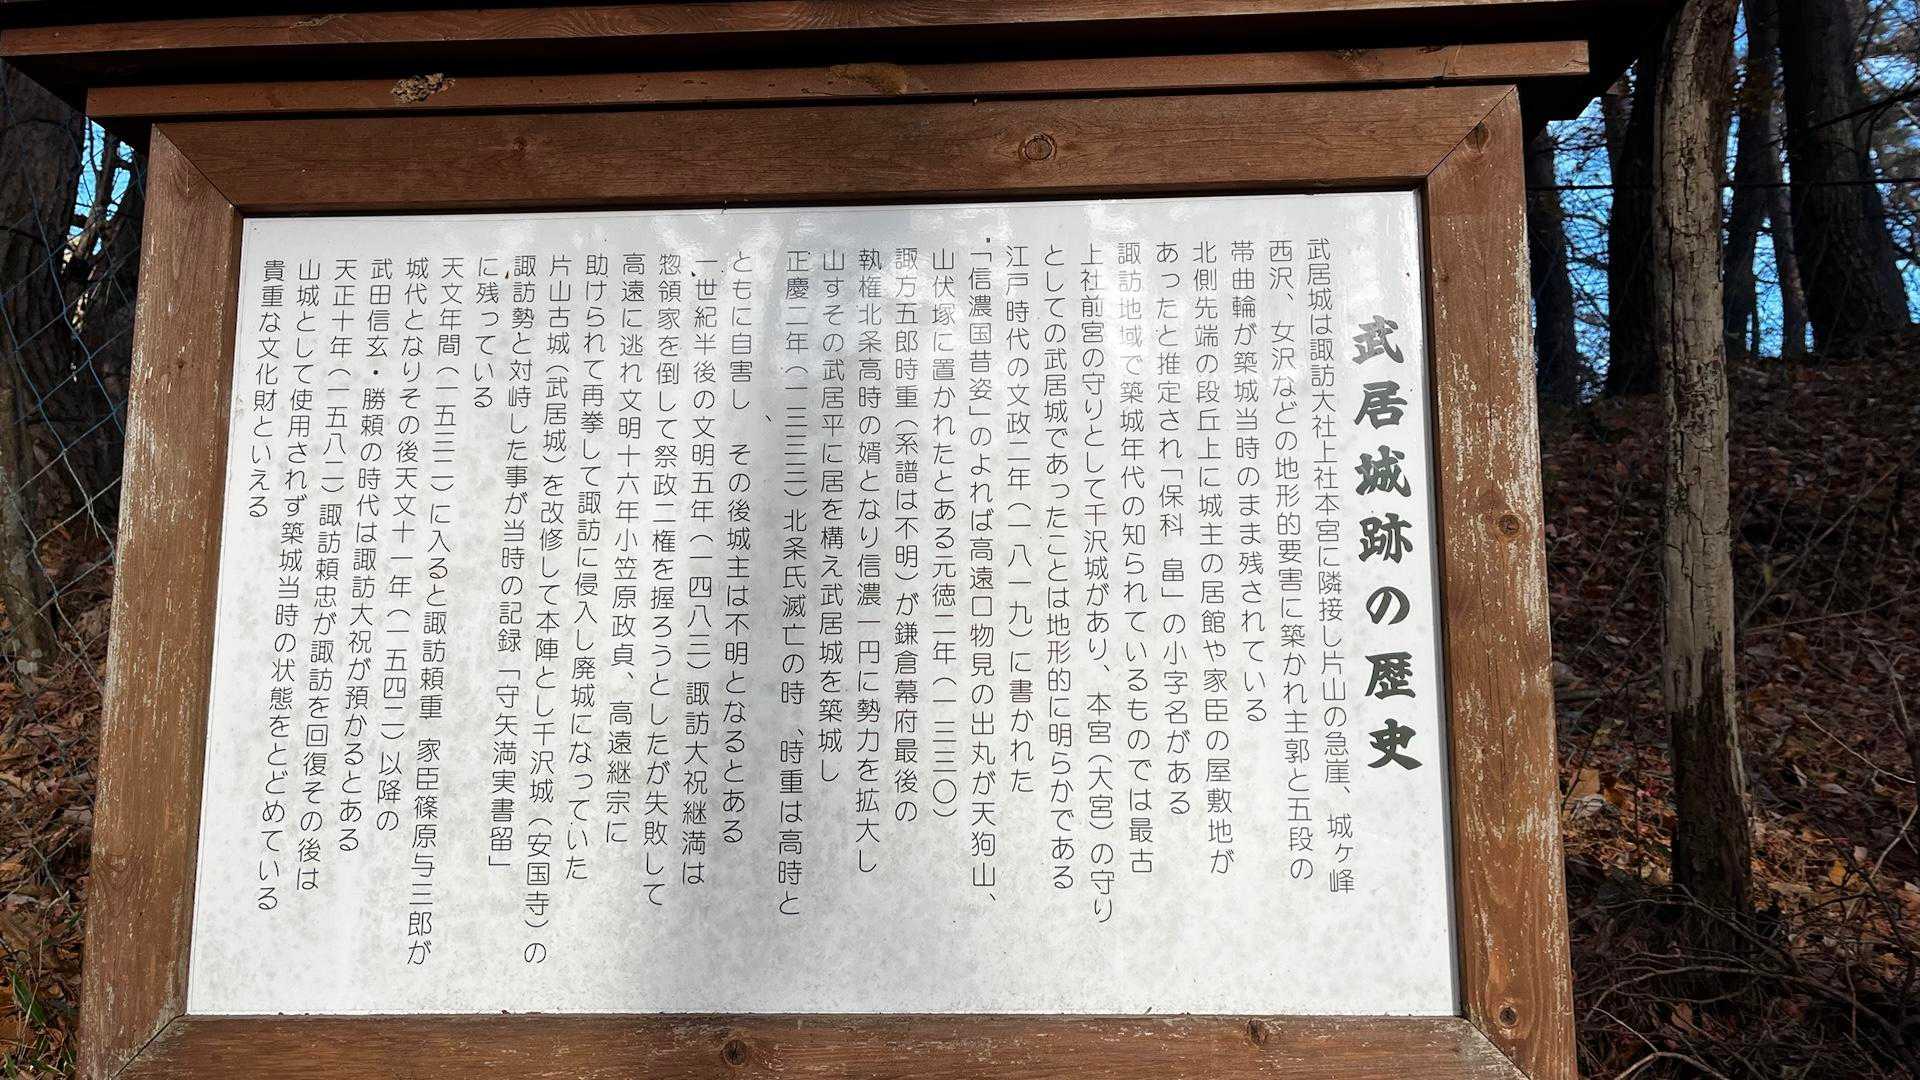 武居城跡の歴史
武居城は諏訪大社上社本宮に隣接し片山の急崖、城ヶ峰
西沢、女沢などの地形的要害に築かれ主郭と五段の
帯曲輪が築城当時のまま残されている
北側先端の段丘上に城主の居館や家臣の屋敷地が
あったと推定され「保科 畠」の小字名がある
諏訪地域で築城年代の知られているものでは最古
上社前宮の守りとして干沢城があり、本宮（大宮）の守り
としての武居城であったことは地形的に明らかである
江戸時代の文政二年（一八一九）に書かれた
「信濃国昔姿」のよれば高遠口物見の出丸が天狗山、
山伏塚に置かれたとある元徳二年（一三三〇）
諏方五郎時重（系譜は不明）が鎌倉幕府最後の
執権北条高時の婿となり信濃一円に勢力を拡大し
山すその武居平に居を構え武居城を築城し
正慶二年（一三三三）北条氏滅亡の時、時重は高時と
ともに自害し、その後城主は不明となるとある
一世紀半後の文明五年（一四八三）諏訪大祝継満は
惣領家を倒して祭政二権を握ろうとしたが失敗して
高遠に逃れ文明十六年小笠原政貞、高遠継宗に
助けられて再挙して諏訪に侵入し廃城になっていた
片山古城（武居城）を改修して本陣とし干沢城（安国寺）の
諏訪勢と対峙した事が当時の記録「守矢満実書留」
に残っている
天文年間（一五三二）に入ると諏訪頼重 家臣篠原与三郎が
城代となりその後天文十一年（一五四二）以降の
武田信玄・勝頼の時代は諏訪大祝が預かるとある
天正十年（一五八二）諏訪頼忠が諏訪を回復その後は
山城として使用されず築城当時の状態をとどめている
貴重な文化財といえる